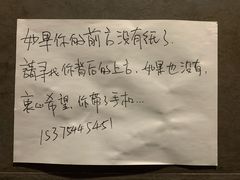 如果你的前方没有纸了.
請寻找你背后的上方,如果也没有,
衷心希望,你带了手机...
15375445451